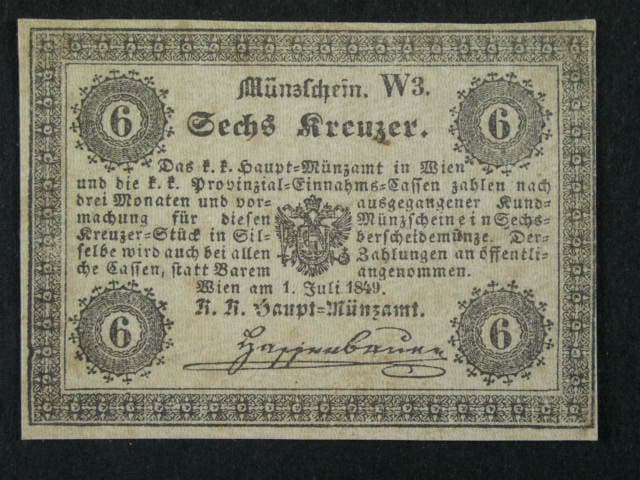 Münzschein. W3.
6 6
Sechs Kreuzer.
Das k. k. Haupt-Münzamt in Wien
und die k. k. Provinzial-Einnahms-Cassen zahlen nach
drei Monaten und vor- ausgegangener Kund-
machung für diesen Münzschein ein Sechs-
Kreuzer-Stück in Sil- berscheidemünze. Der-
selbe wird auch bei allen Zahlungen an öffentli-
che Cassen, statt Barem angenommen.
Wien am 1. Juli 1849.
K. K. Haupt-Münzamt.
6 6
Hassenbauer